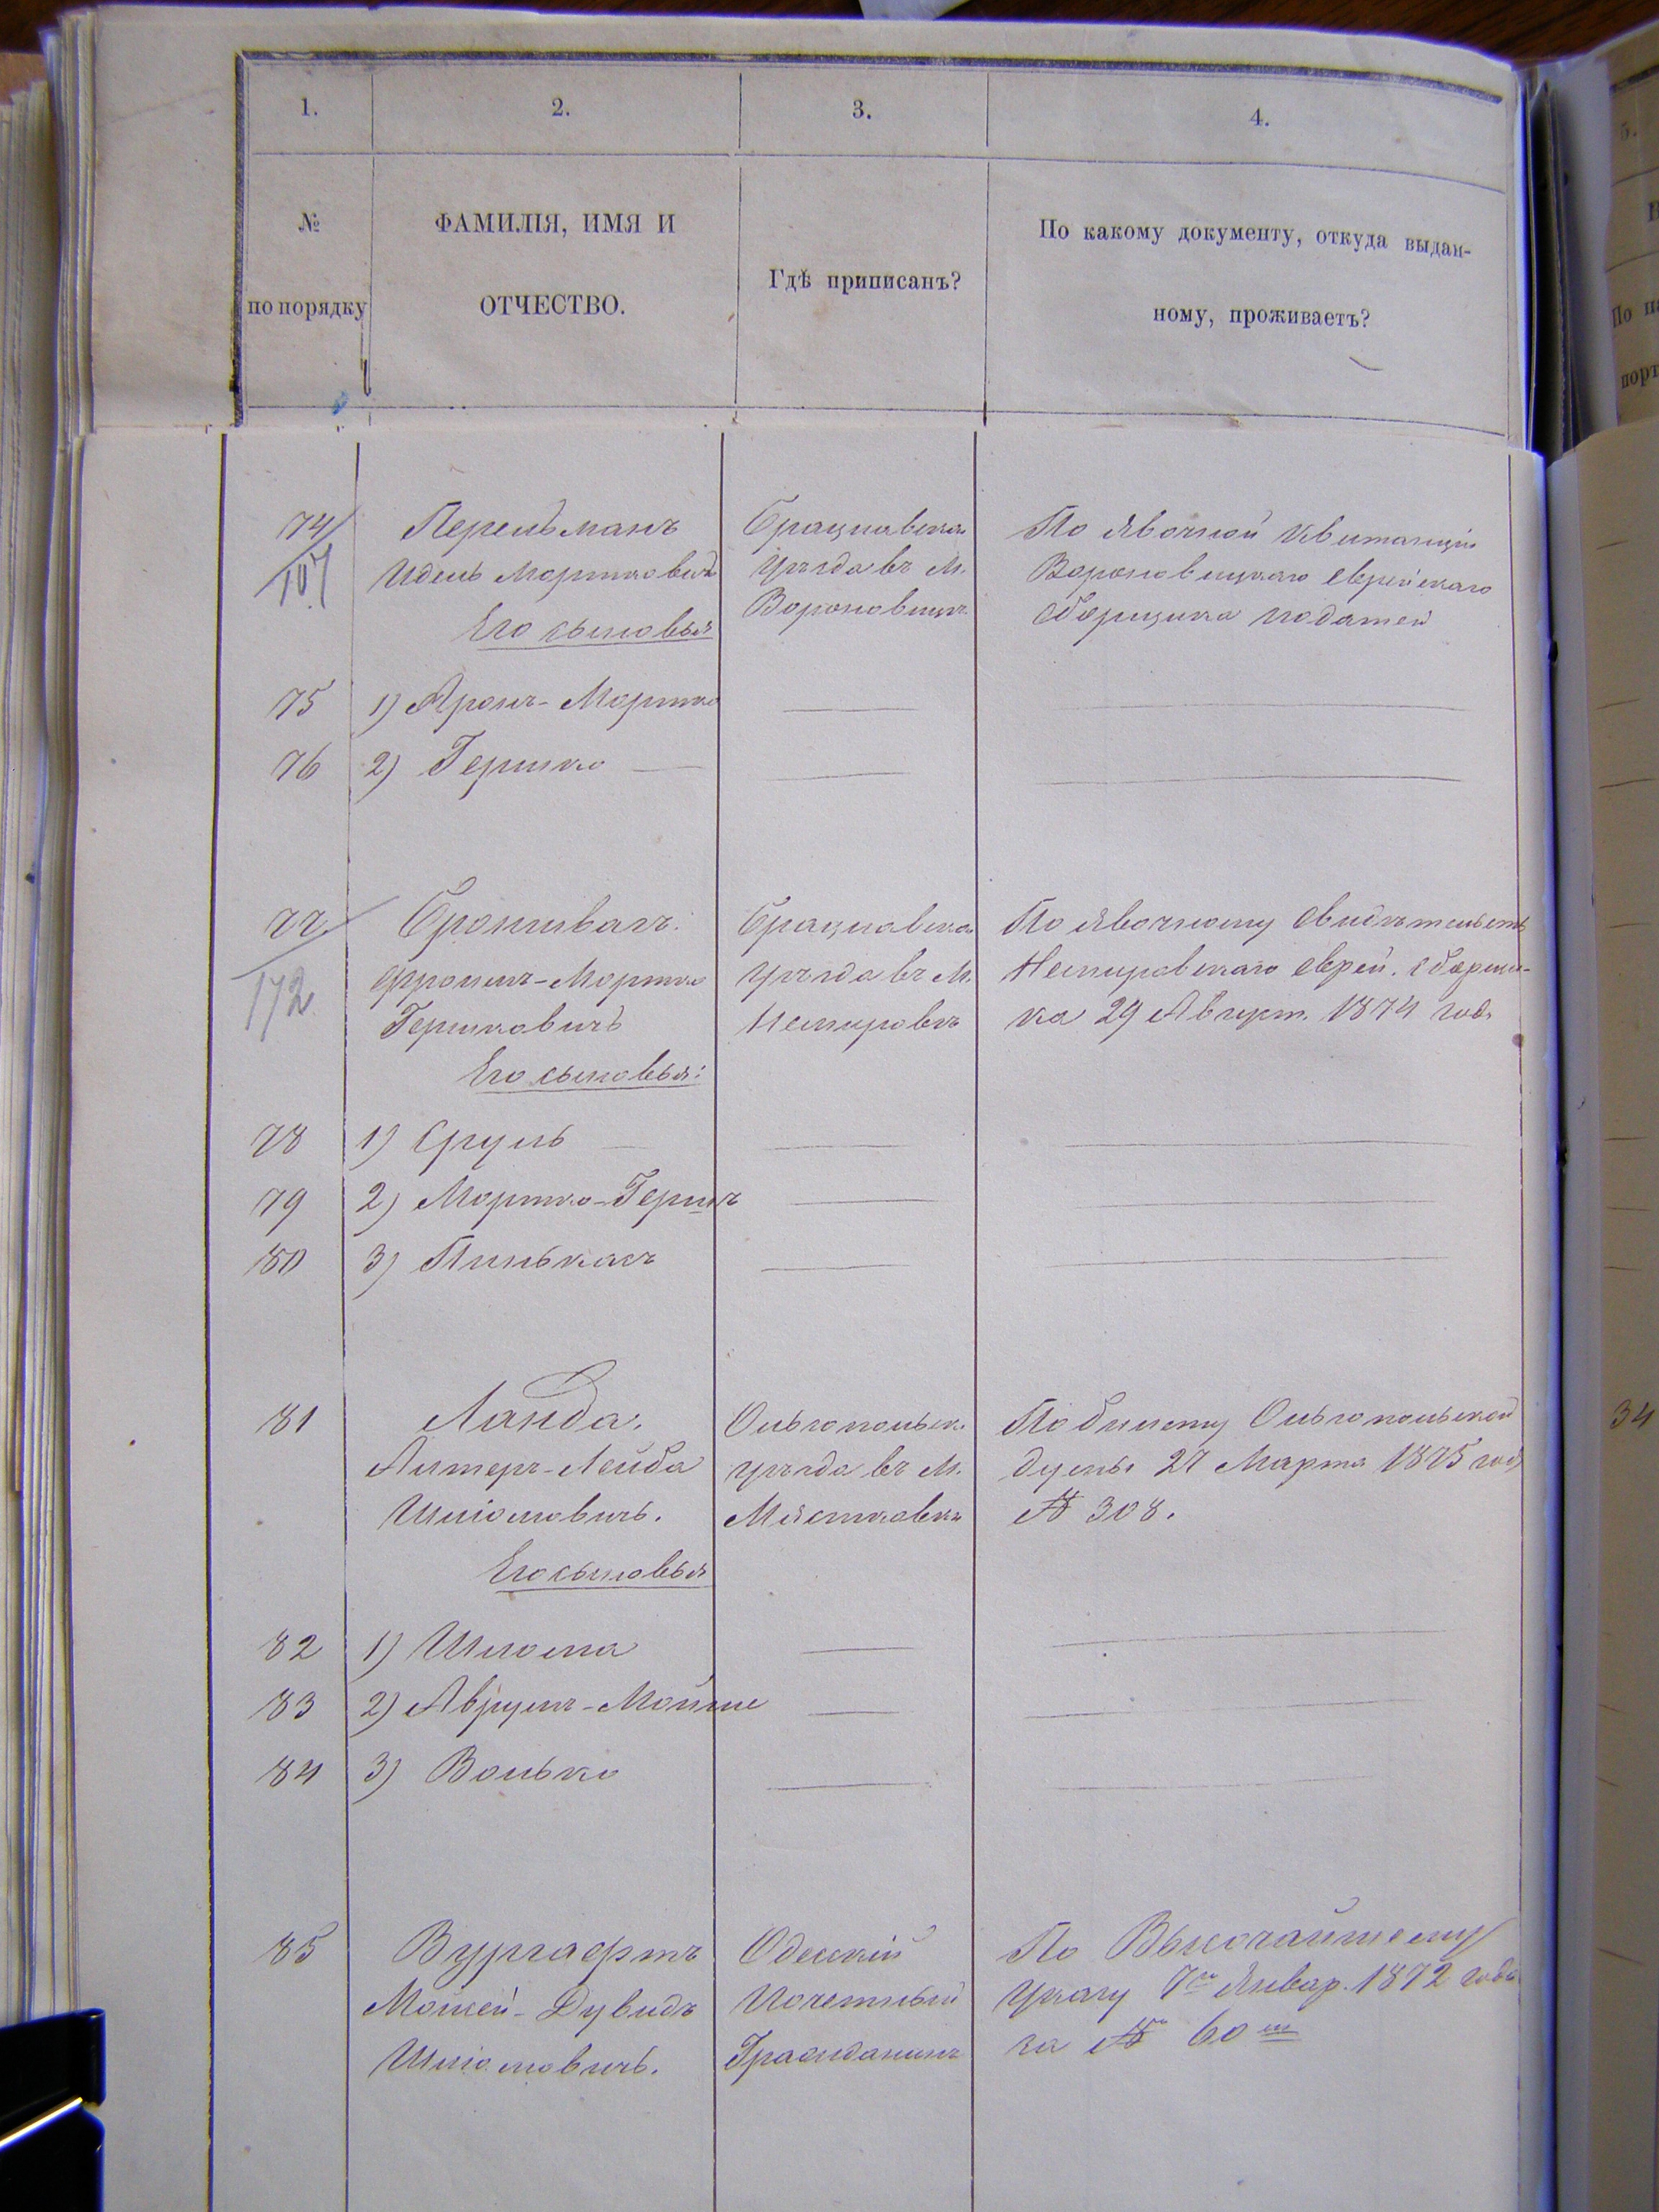 1.
2.
3.
4.
№
по порядку
ФАМИЛІЯ, ИМЯ И
ОТЧЕСТВО.
Гдѣ приписанъ?
По какому документу, откуда выдан-
ному, проживаетъ?
74
107
Перельманъ
Идель Мортковичъ
Его сыновья
Брацлавска
уѣзда въ М.
Вороновицѣ
По явочной квитанціи
Вороновицкаго еврейскаго
сборщика податей
75 1) Аронъ-Мортко
76 2) Гершко
77
172
Бронштванъ.
Фроимъ-Мортко
Гершковичъ
Его сыновья:
Брацлавска
уѣзда въ М.
Немировѣ
По явочному свидѣтельств
Немировскаго еврей. сборщи-
ка 29 Август. 1874 года
78 1) Сруль
79 2) Мортко-Гершъ
80 3) Пинькасъ
81
Ланда.
Алтеръ-Лейба
Шліомовичъ.
Его сыновья
Ольгопольск.
уѣзда въ М.
Мястковкѣ
По билету Ольгопольской
думы 27 Марта 1875 года
№ 308.
82 1) Шлёма
83 2) Аврумъ-Мойше
84 3) Волько
85
Вургафтъ
Мошей-Дувидъ
Шліомовичъ.
Одесскій
Почетный
Гражданинъ
По Высочайшему
Указу 7го Январ. 1872 года
за № 60 м
34